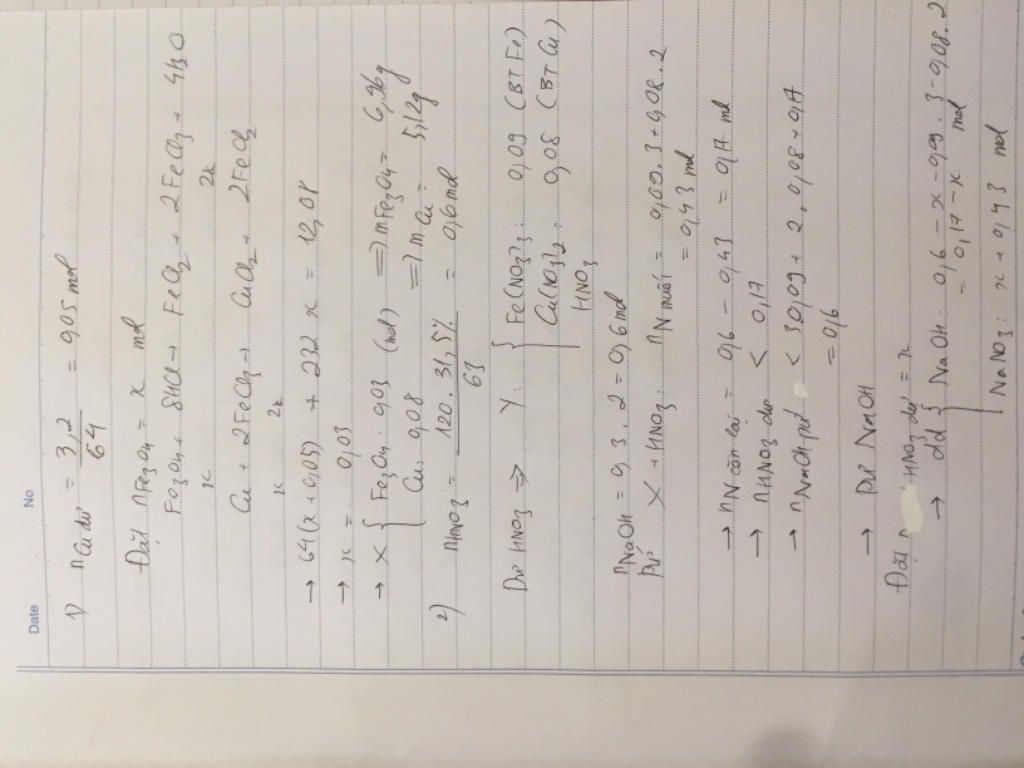 Date No
1) nCu dư = 3,2/64 = 0,05 mol
Đặt nFe3O4 = x mol
Fe3O4 + 8HCl → FeCl2 + 2FeCl3 + 4H2O
x 2x
Cu + 2FeCl3 → CuCl2 + 2FeCl2
x 2x
→ 64(x + 0,05) + 232 x = 12,08
→ x = 0,03
→ X { Fe3O4 : 0,03 (mol) => mFe3O4 = 6,96g
Cu : 0,08 => mCu = 5,12g
2) nHNO3 = 120 . 31,5% / 63 = 0,6 mol
Dư HNO3 => Y : { Fe(NO3)3 : 0,09 (BT Fe)
Cu(NO3)2 : 0,08 (BT Cu)
HNO3
nNaOH = 0,3 . 2 = 0,6 mol
Pứ X + HNO3 : nN muối = 0,09.3 + 0,08.2
= 0,43 mol
→ nN còn lại = 0,6 - 0,43 = 0,17 mol
→ nHNO3 dư < 0,17
→ nNaOH pứ < 3.0,09 + 2.0,08 + 0,17
= 0,6
→ Dư NaOH
Đặt n HNO3 dư = x
→ dd { NaOH : 0,6 - x - 0,09 . 3 - 0,08 . 2
= 0,17 - x mol
NaNO3 : x + 0,43 mol